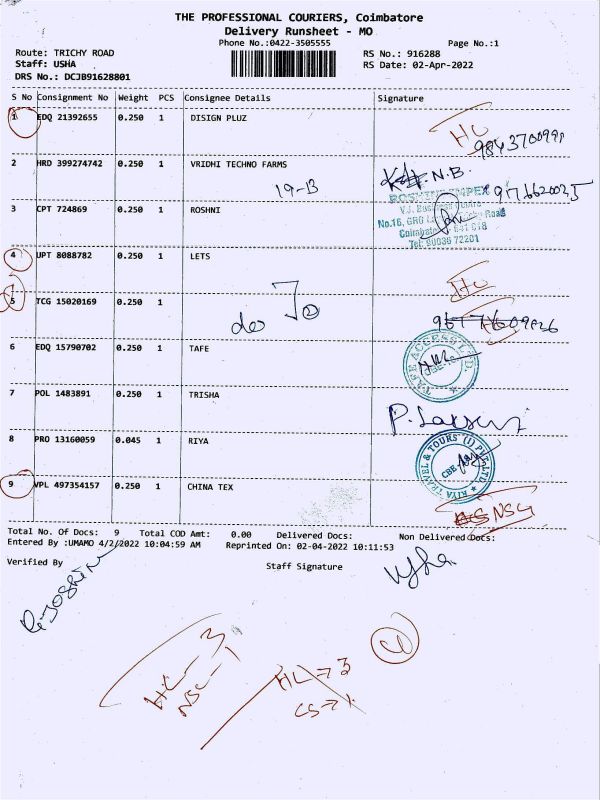 THE PROFESSIONAL COURIERS, Coimbatore
Delivery Runsheet - MO
Phone No.:0422-3505555
Page No.:1
Route: TRICHY ROAD
RS No.: 916288
Staff: USHA
RS Date: 02-Apr-2022
DRS No.: DCJB91628801
S No Consignment No Weight PCS Consignee Details Signature
1 EDQ 21392655 0.250 1 DISIGN PLUZ
HC
9843700991
2 HRD 399274742 0.250 1 VRIDHI TECHNO FARMS
19-B
N.B.
ROSHINI IMPEX
3 CPT 724869 0.250 1 ROSHNI
No.16, GRG
Road
Tel: 90036 72201
4 UPT 8088782 0.250 1 LETS
HC
5 TCG 15020169 0.250 1
do
6 EDQ 15790702 0.250 1 TAFE
TAFE ACCESS LTD.
7 POL 1483891 0.250 1 TRISHA
8 PRO 13160059 0.045 1 RIYA
RIYA TRAVEL & TOURS (I) PVT. LTD.
CBE
9 VPL 497354157 0.250 1 CHINA TEX
NSG
Total No. Of Docs: 9 Total COD Amt: 0.00 Delivered Docs: Non Delivered Docs:
Entered By :UMAMO 4/2/2022 10:04:59 AM Reprinted On: 02-04-2022 10:11:53
Verified By Staff Signature
Usha
HC - 3
NSC - 1
HC → 3
CS → 1
4